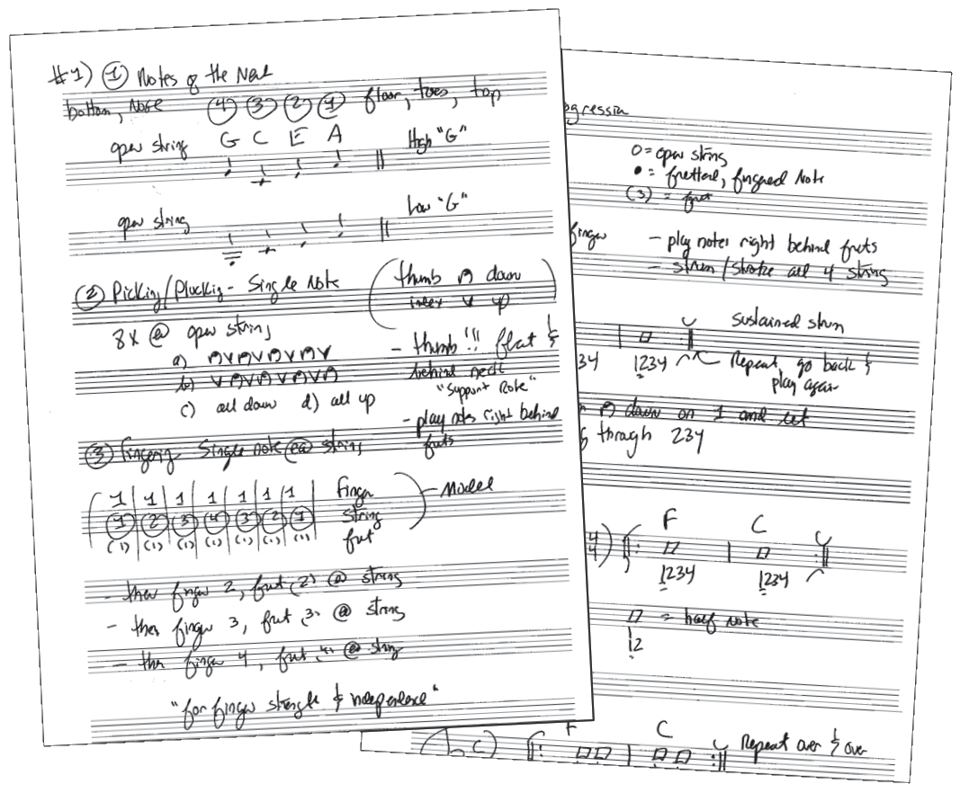 #1) ① Notes of the Neck
bottom, nose ④ ③ ② ① floor, toes, top
open string G C E A High "G"
open string Low "G"
② Picking/Plucking - Single Note (thumb ⊓ down
index V up)
8x @ open string
a) ⊓V⊓V⊓V⊓V - thumb!!! flat &
b) V⊓V⊓V⊓V⊓ behind neck
"Support Role"
c) all down d) all up
- play notes right behind
frets
③ Fingering Single note @ string
1 | 1 | 1 | 1 | 1 | 1 | 1 finger - Model
① | ② | ③ | ④ | ③ | ② | ① string
(1) (1) (1) (1) (1) (1) (1) fret
- then finger 2, fret (2) @ string
- then finger 3, fret (3) @ string
- then finger 4, fret (4) @ string
"for finger strength & independence"
gression
O = open string
• = fretted, fingered note
(3) = fret
finger - play notes right behind frets
- strum/stroke all 4 string
sustained strum
34 1234 Repeat, go back &
play again
⊓ down on 1 and let
through 234
4/4) F C
1234 1234
= half note
12
F C
b c) Repeat over & over